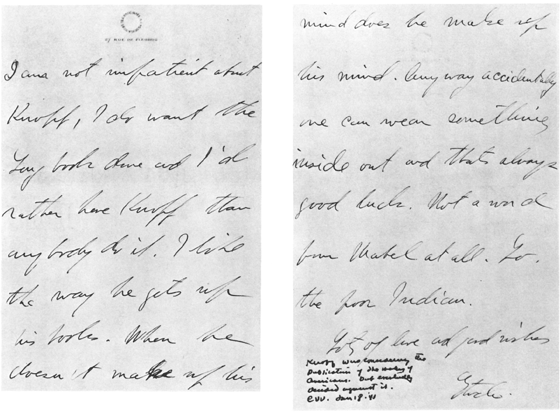 27 RUE DE FLEURUS
I am not impatient about
Knopf, I do want the
Long book done and I'd
rather have Knopf than
anybody do it. I like
the way he gets up
his books. When he
doesn't make up his
mind does he make up
his mind. Anyway accidentally
one can wear something
inside out and thats always
good luck. Not a word
from Mabel at all. Lo.
the poor Indian.
Lots of love and good wishes
Gtrde.
Knopf was considering the
publication of The Making of
Americans. But eventually
decided against it.
CVV. Jan. 9. 41